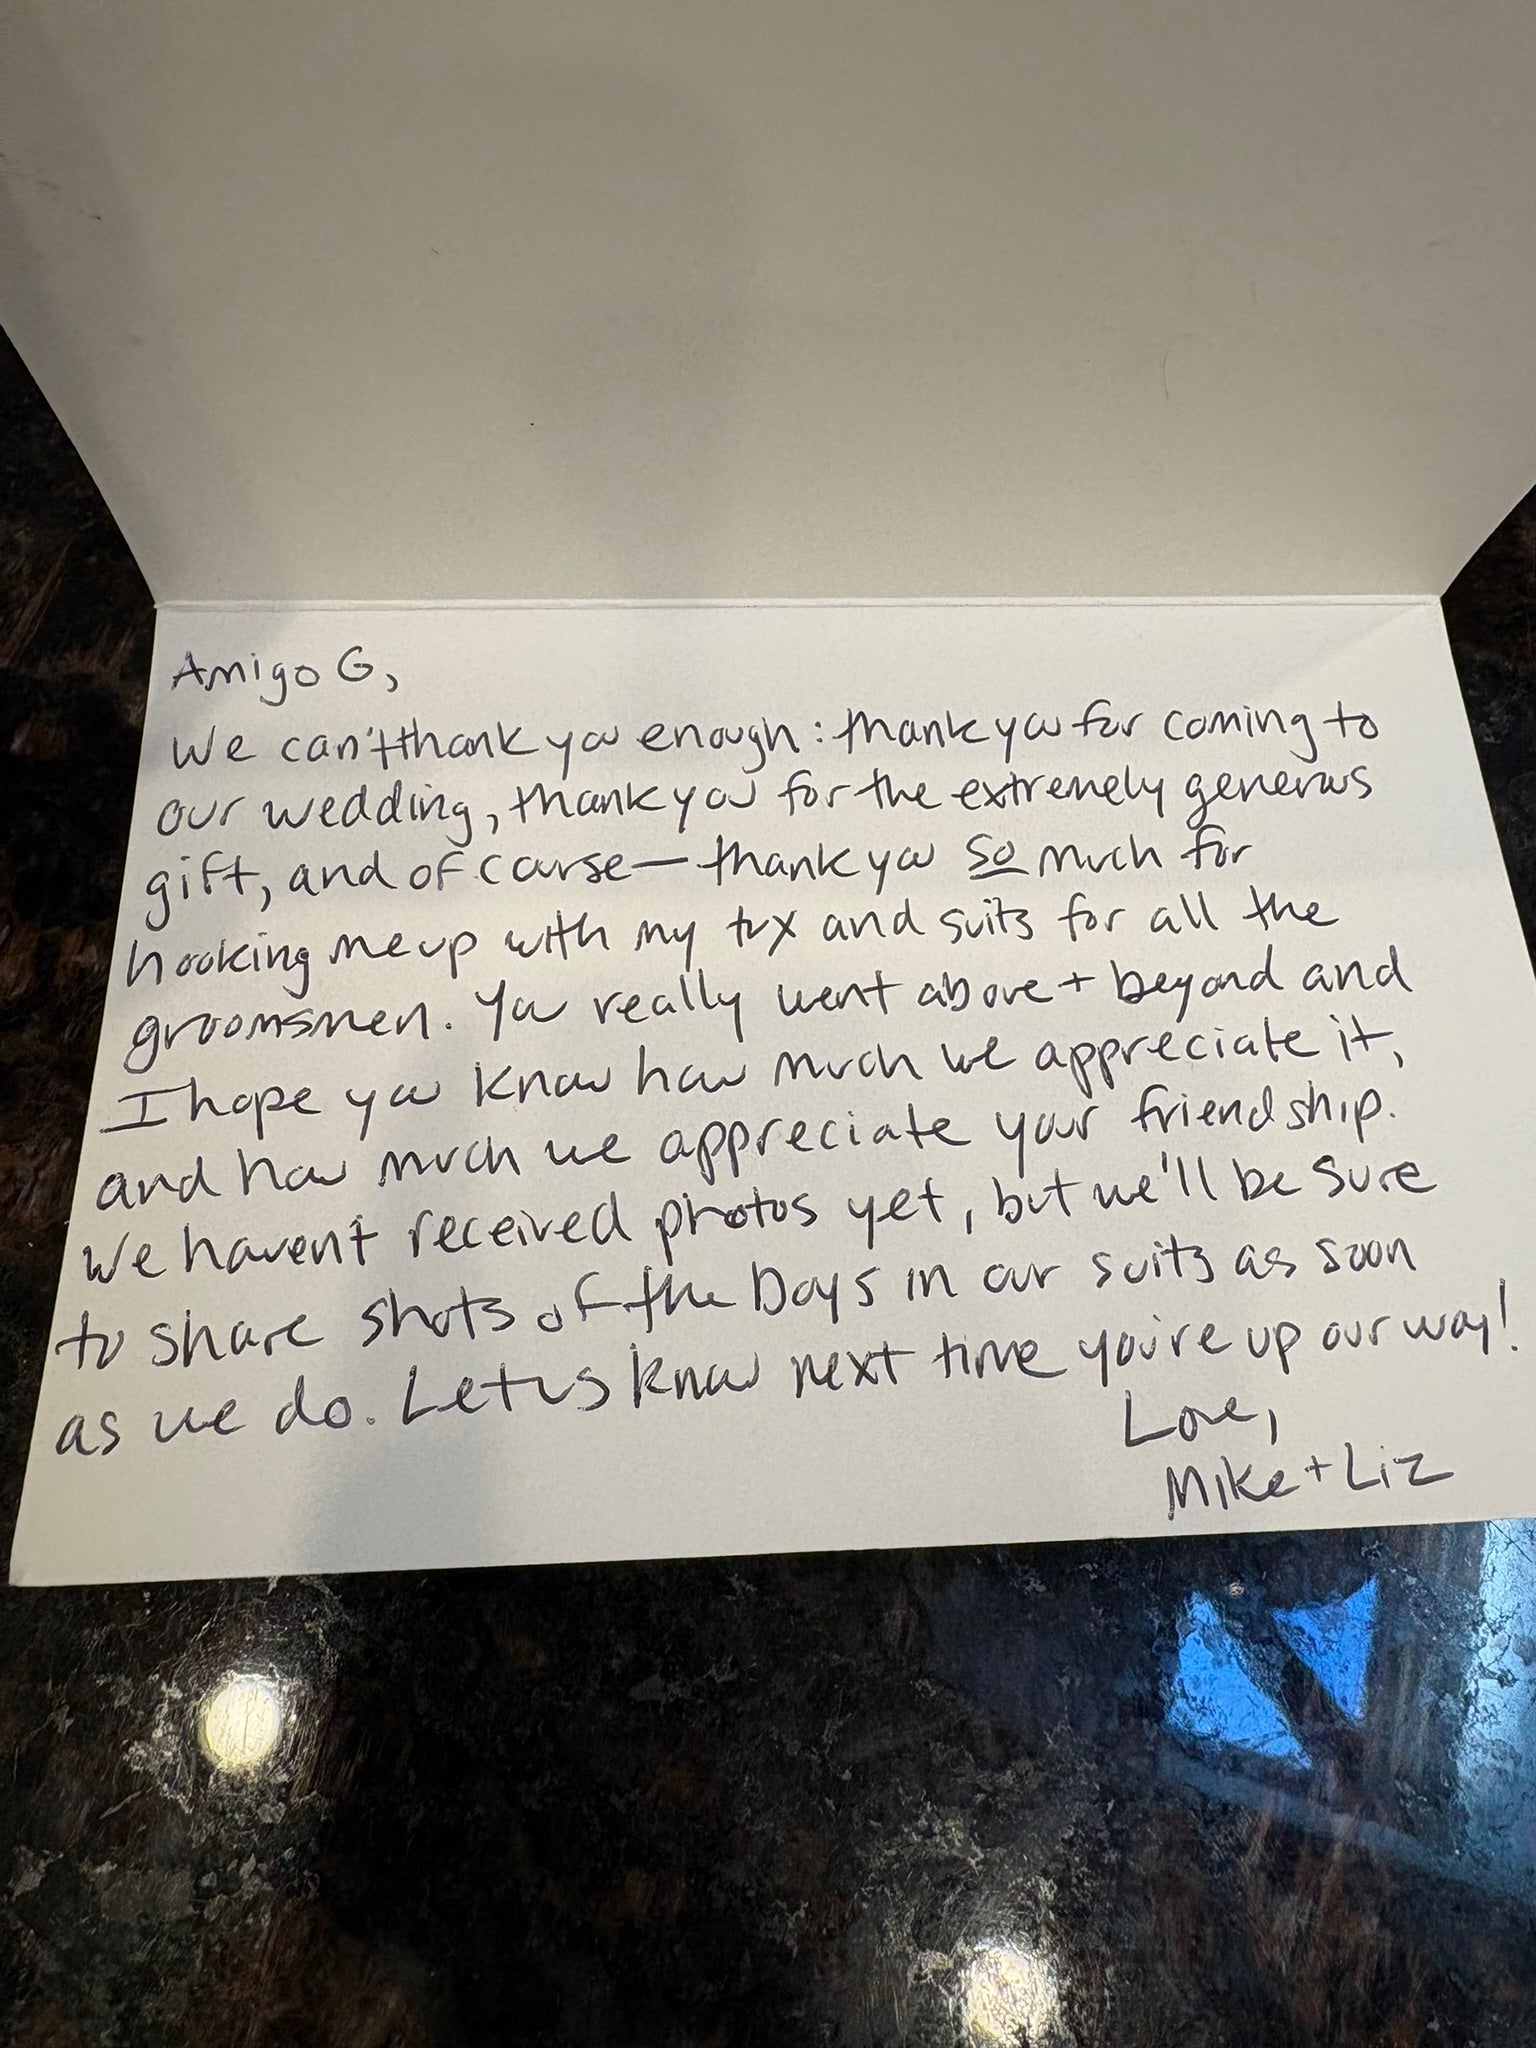 Amigo G,
We can't thank you enough: thank you for coming to
our wedding, thank you for the extremely generous
gift, and of course — thank you so much for
hooking me up with my tux and suits for all the
groomsmen. You really went above + beyond and
I hope you know how much we appreciate it,
and how much we appreciate your friendship.
We haven't received photos yet, but we'll be sure
to share shots of the boys in our suits as soon
as we do. Let us know next time you're up our way!
Love,
Mike + Liz